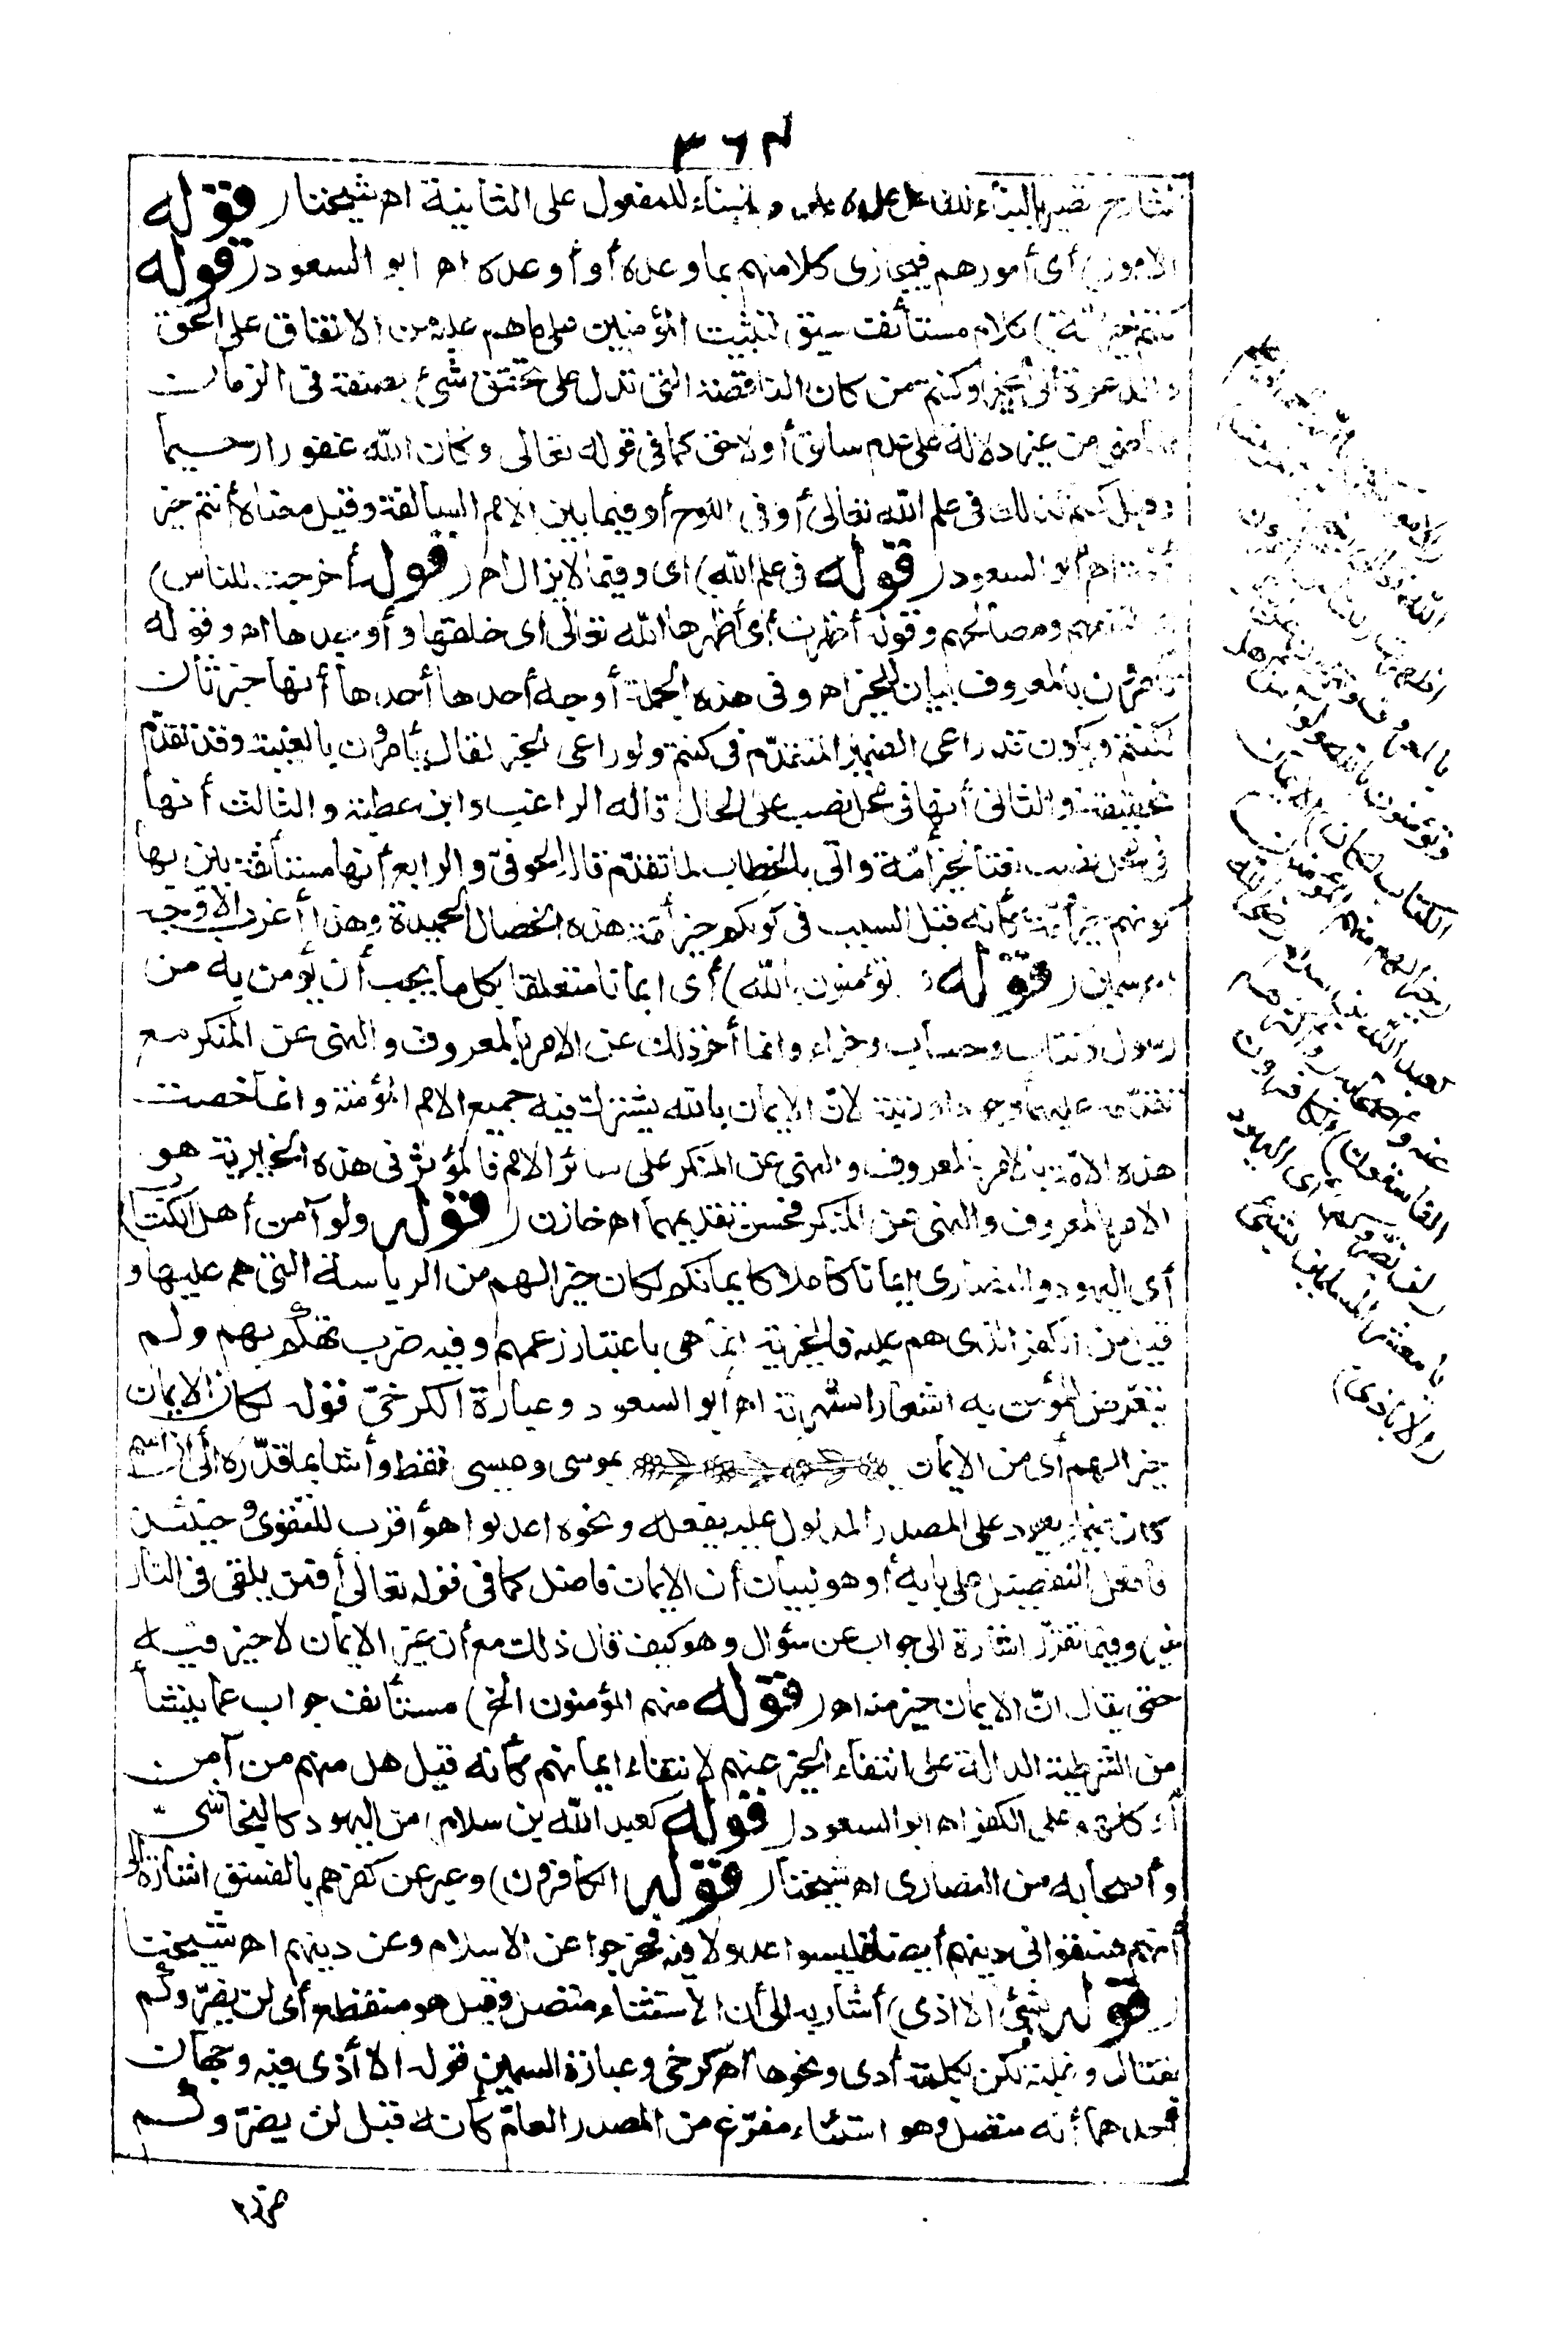 ٣٦٣
تصير بالبناء للفاعل على هذه وبالبناء للمفعول على الثانية اه شيخنا (قوله
الامور) أى أمورهم فيجازى كلا منهم بما وعده أو أوعده اه ابو السعود (قوله
كنتم خير أمة) كلام مستأنف سيق لتثبيت المؤمنين على ما هم عليه من الاتفاق على الحق
والدعوة الى الخير وكنتم من كان الناقصة التى تدل على تحقق شئ بصفة فى الزمان
الماضى من غير دلالة على عدم سابق أو لاحق كما فى قوله تعالى وكان الله غفورا رحيما
وقيل كنتم كذلك فى علم الله تعالى أو فى اللوح أو فيما بين الامم السالفة وقيل معناه أنتم خير
أمة اه أبو السعود (قوله فى علم الله) اى وفيما لا يزال اه (قوله أخرجت للناس)
لنفعهم ومصالحهم وقوله أظهرت أى أظهرها الله تعالى اى خلقها وأوجدها اه وقوله
تأمرون بالمعروف بيان للخير اه وفى هذه الجملة أوجه أحدها أحدها أنها خبر ثان
لكنتم ويكون قد راعى الضمير المتقدّم فى كنتم ولو راعى الخبر لقال يأمرون بالغيبة وقد تقدّم
تحقيقه والثانى أنها فى محل نصب على الحال قاله الراغب وابن عطية والثالث أنها
فى محل نصب نعتا لخير أمّة وأتى بالخطاب لما تقدّم قاله الحوفىّ والرابع أنها مستأنفة بين بها
كونهم خير أمّة كأنه قيل السبب فى كونكم خير أمّة هذه الخصال الحميدة وهذا أغرب الاوجه
اه سمين (قوله وتؤمنون بالله) أى ايمانا متعلقا بكل ما يجب أن يؤمن به من
رسول وكتاب وحساب وجزاء وانما أخر ذلك عن الامر بالمعروف والنهى عن المنكر مع
تقدّمه عليهما وجودا ورتبة لانّ الايمان بالله يشترك فيه جميع الامم المؤمنة وانما خصت
هذه الامّة بالامر بالمعروف والنهى عن المنكر على سائر الامم فالمؤثر فى هذه الخيرية هو
الامر بالمعروف والنهى عن المنكر فحسن تقديمهما اه خازن (قوله ولو آمن أهل الكتاب)
أى اليهود والنصارى ايمانا كاملا كايمانكم لكان خيرا لهم من الرياسة التى هم عليها و
قيل من الكفر الذى هم عليه فالخيرية انما هى باعتبار زعمهم وفيه ضرب تهكم بهم ولم
يتعرّض للمؤمن به اشعارا لشهرته اه أبو السعود وعبارة الكرخىّ قوله لكان الايمان
خيرا لهم أى من الايمان بموسى وعيسى فقط وأشار بما قدّره الى أن اسم
كان ضمير يعود على المصدر المدلول عليه بفعله ونحوه اعدلوا هو أقرب للتقوى وحينئذ
فأفعل التفضيل على بابه أو هو لبيان أن الايمان فاضل كما فى قوله تعالى أفمن يلقى فى النار
خير وفيما تقرّر اشارة الى جواب عن سؤال وهو كيف قال ذلك مع أن غير الايمان لا خير فيه
حتى يقال انّ الايمان خير منه اه (قوله منهم المؤمنون الخ) مستأنف جواب عما ينشأ
من الشرطية الدالة على انتفاء الخير عنهم لانتفاء ايمانهم كأنه قيل هل منهم من آمن
أو كلهم على الكفر اه ابو السعود (قوله كعبد الله بن سلام) من اليهود كالنجاشىّ
وأصحابه من النصارى اه شيخنا (قوله الكافرون) وعبر عن كفرهم بالفسق اشارة الى
أنهم فسقوا فى دينهم أيضا فليسوا عدولا فيه فخرجوا عن الاسلام وعن دينهم اه شيخنا
(قوله بشئ الا اذى) أشار به الى أن الاستثناء متصل وقيل هو منقطع أى لن يضرّوكم
بقتال وغلبة لكن بكلمة أذى ونحوها اه كرخى وعبارة السمين قوله الا أذى فيه وجهان
أحدهما أنه متصل وهو استثناء مفرّغ من المصدر العامّ كأنه قيل لن يضرّوكم
وتؤمنون بالله ولو
الكتاب لكان) الايمان
(خيرا لهم منهم المؤمنون
كعبد الله بن سلام رضى الله
عنه وأصحابه (وأكثرهم
الفاسقون) الكافرون
(لن يضروكم) أى اليهود
يا معشر المسلمين بشئ
(الا أذى)